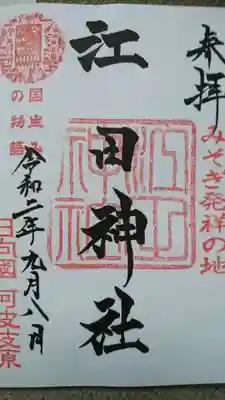 奉拝
みそぎ発祥の地
江田神社
江田神社
国生み
の物語
令和二年九月八日
日向國 阿波岐原